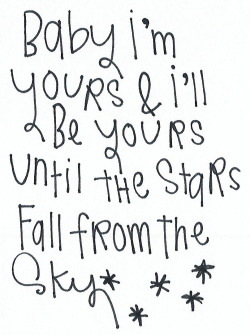 Baby i'm
YOURS & i'll
Be YOURS
until the Stars
Fall from the
Sky